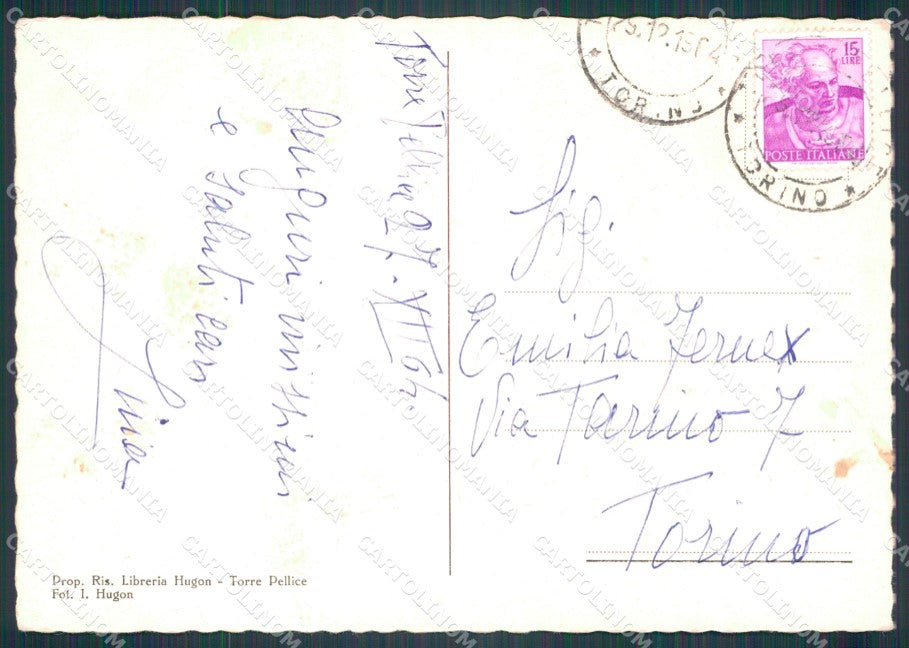 Torre Pellice 27.XII.64
Auguri vivissimi
e saluti cari
Lina
Sig.
Emilia Jernex
Via Tarino 7
Torino
15
LIRE
POSTE ITALIANE
TORINO
TORINO
Prop. Ris. Libreria Hugon - Torre Pellice
Fot. I. Hugon
CARTOLINOMANIA